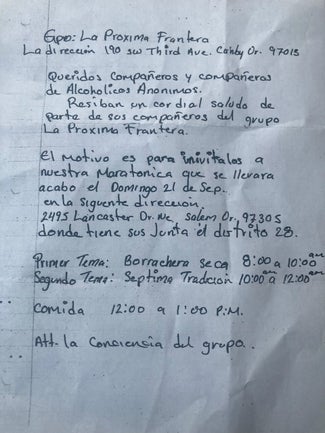 Gpo: La Proxima Frantera
La dirección 190 sw Third Ave. Canby Or. 97013
Queridos Compañeros y compañeros
de Alcoholicos Anonimos.
Resiban un cordial saludo de
parte de sus compañeros del grupo
La Proxima Frantera.
El Motivo es para inivitalos a
nuestra Maratonica que se llevara
acabo el Domingo 21 de Sep.
en la siguente dirección.
2495 Lancaster Dr. Ne, Salem Or, 97305
donde tiene sus Junta el distrito 28.
Primer Tema: Borrachera seca 8:00 a 10:00 am
Segundo Tema: Septima Tradicion 10:00 am a 12:00 am
Comida 12:00 a 1:00 P.M.
Att. la Conciencia del grupo.